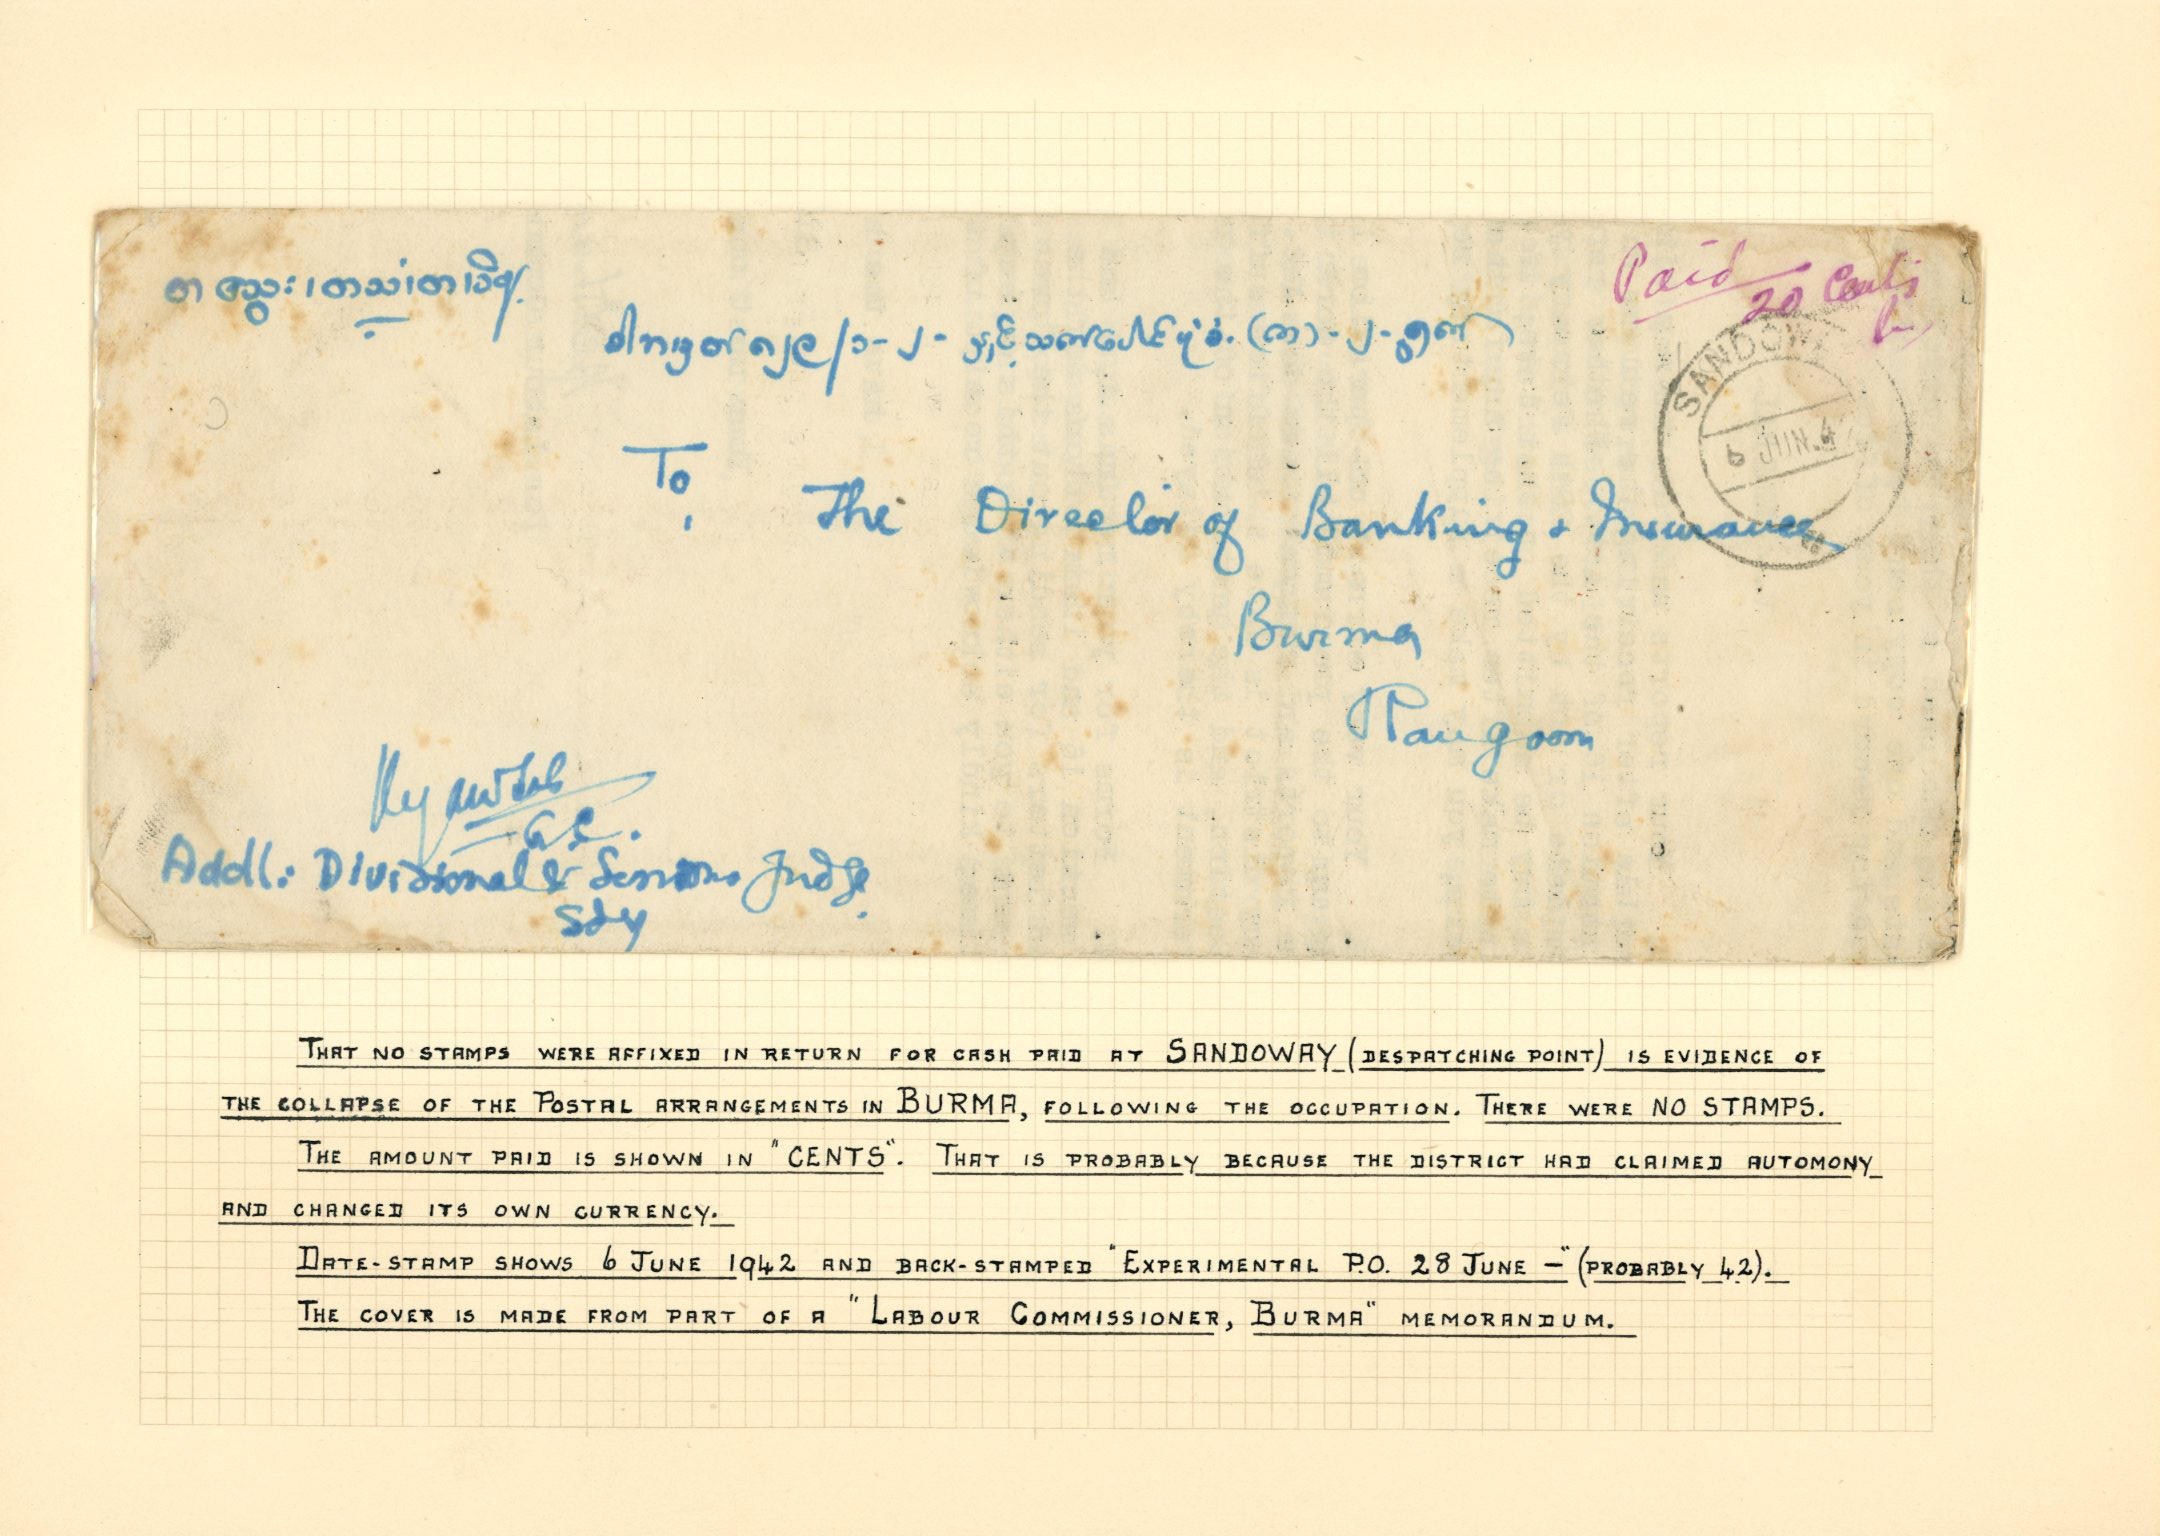 Paid
20 Cents
SANDOW
6 JUN. 4
To
The Director of Banking & Insurance
Burma
Rangoon
Addl: Divisional & Sessions Judge
Sdy
THAT NO STAMPS WERE AFFIXED IN RETURN FOR CASH PAID AT SANDOWAY (DESPATCHING POINT) IS EVIDENCE OF
THE COLLAPSE OF THE POSTAL ARRANGEMENTS IN BURMA, FOLLOWING THE OCCUPATION. THERE WERE NO STAMPS.
THE AMOUNT PAID IS SHOWN IN "CENTS". THAT IS PROBABLY BECAUSE THE DISTRICT HAD CLAIMED AUTOMONY
AND CHANGED ITS OWN CURRENCY.
DATE-STAMP SHOWS 6 JUNE 1942 AND BACK-STAMPED "EXPERIMENTAL P.O. 28 JUNE —" (PROBABLY 42).
THE COVER IS MADE FROM PART OF A "LABOUR COMMISSIONER, BURMA" MEMORANDUM.